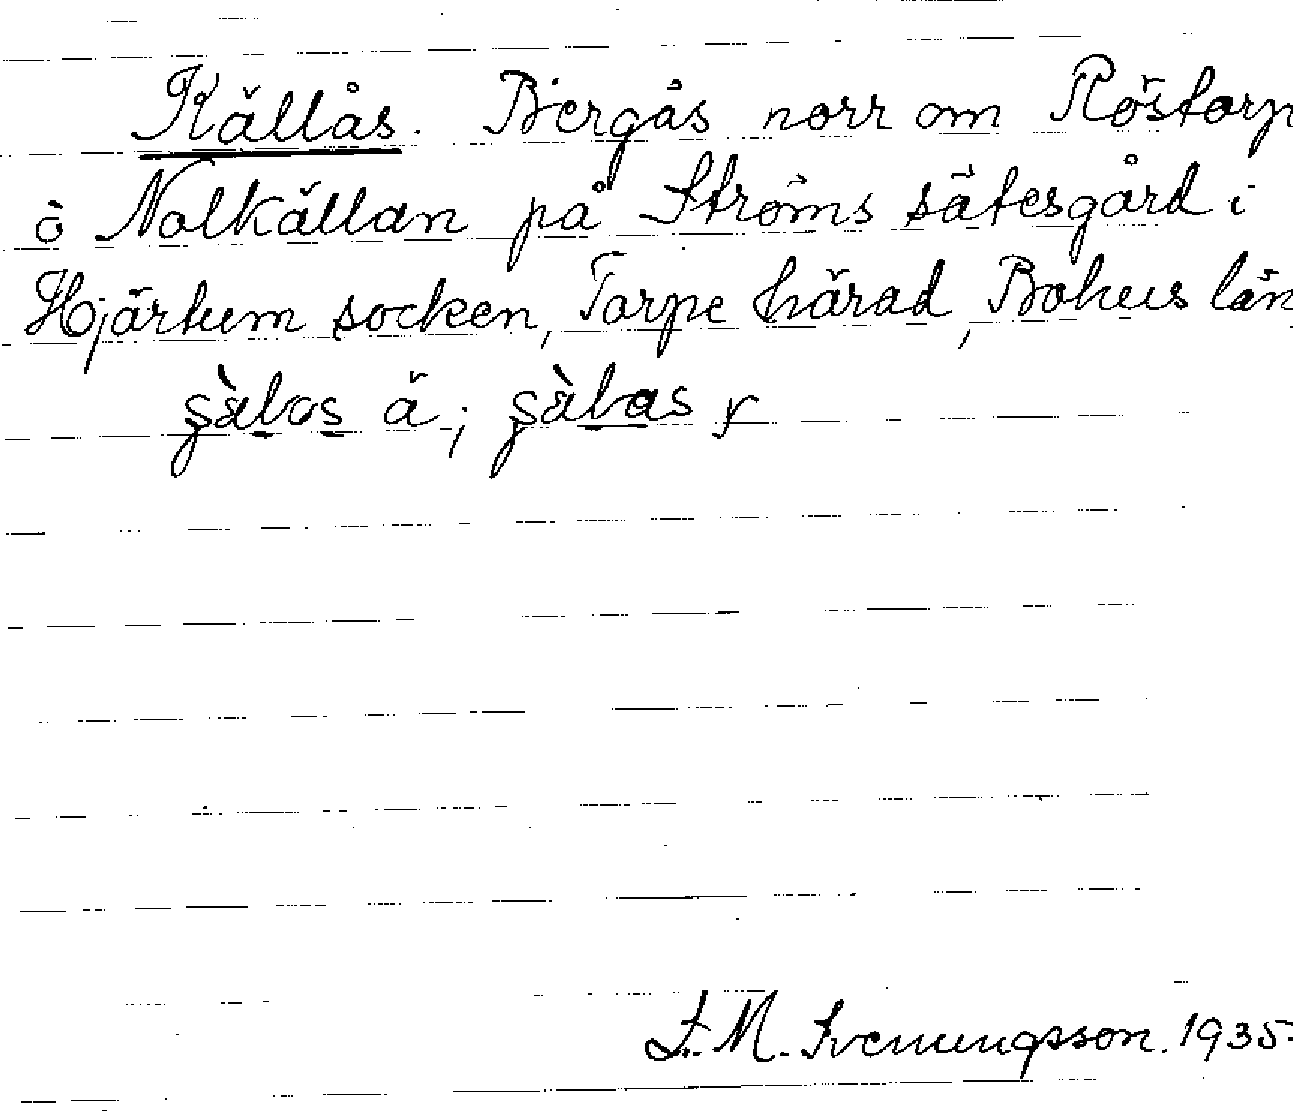 Källås. Bergås norr om Röstorp
å Nolkällan på Ströms sätesgård i
Hjärtum socken, Torpe härad, Bohus län
ä; r
L. M. Svenungsson. 1935.